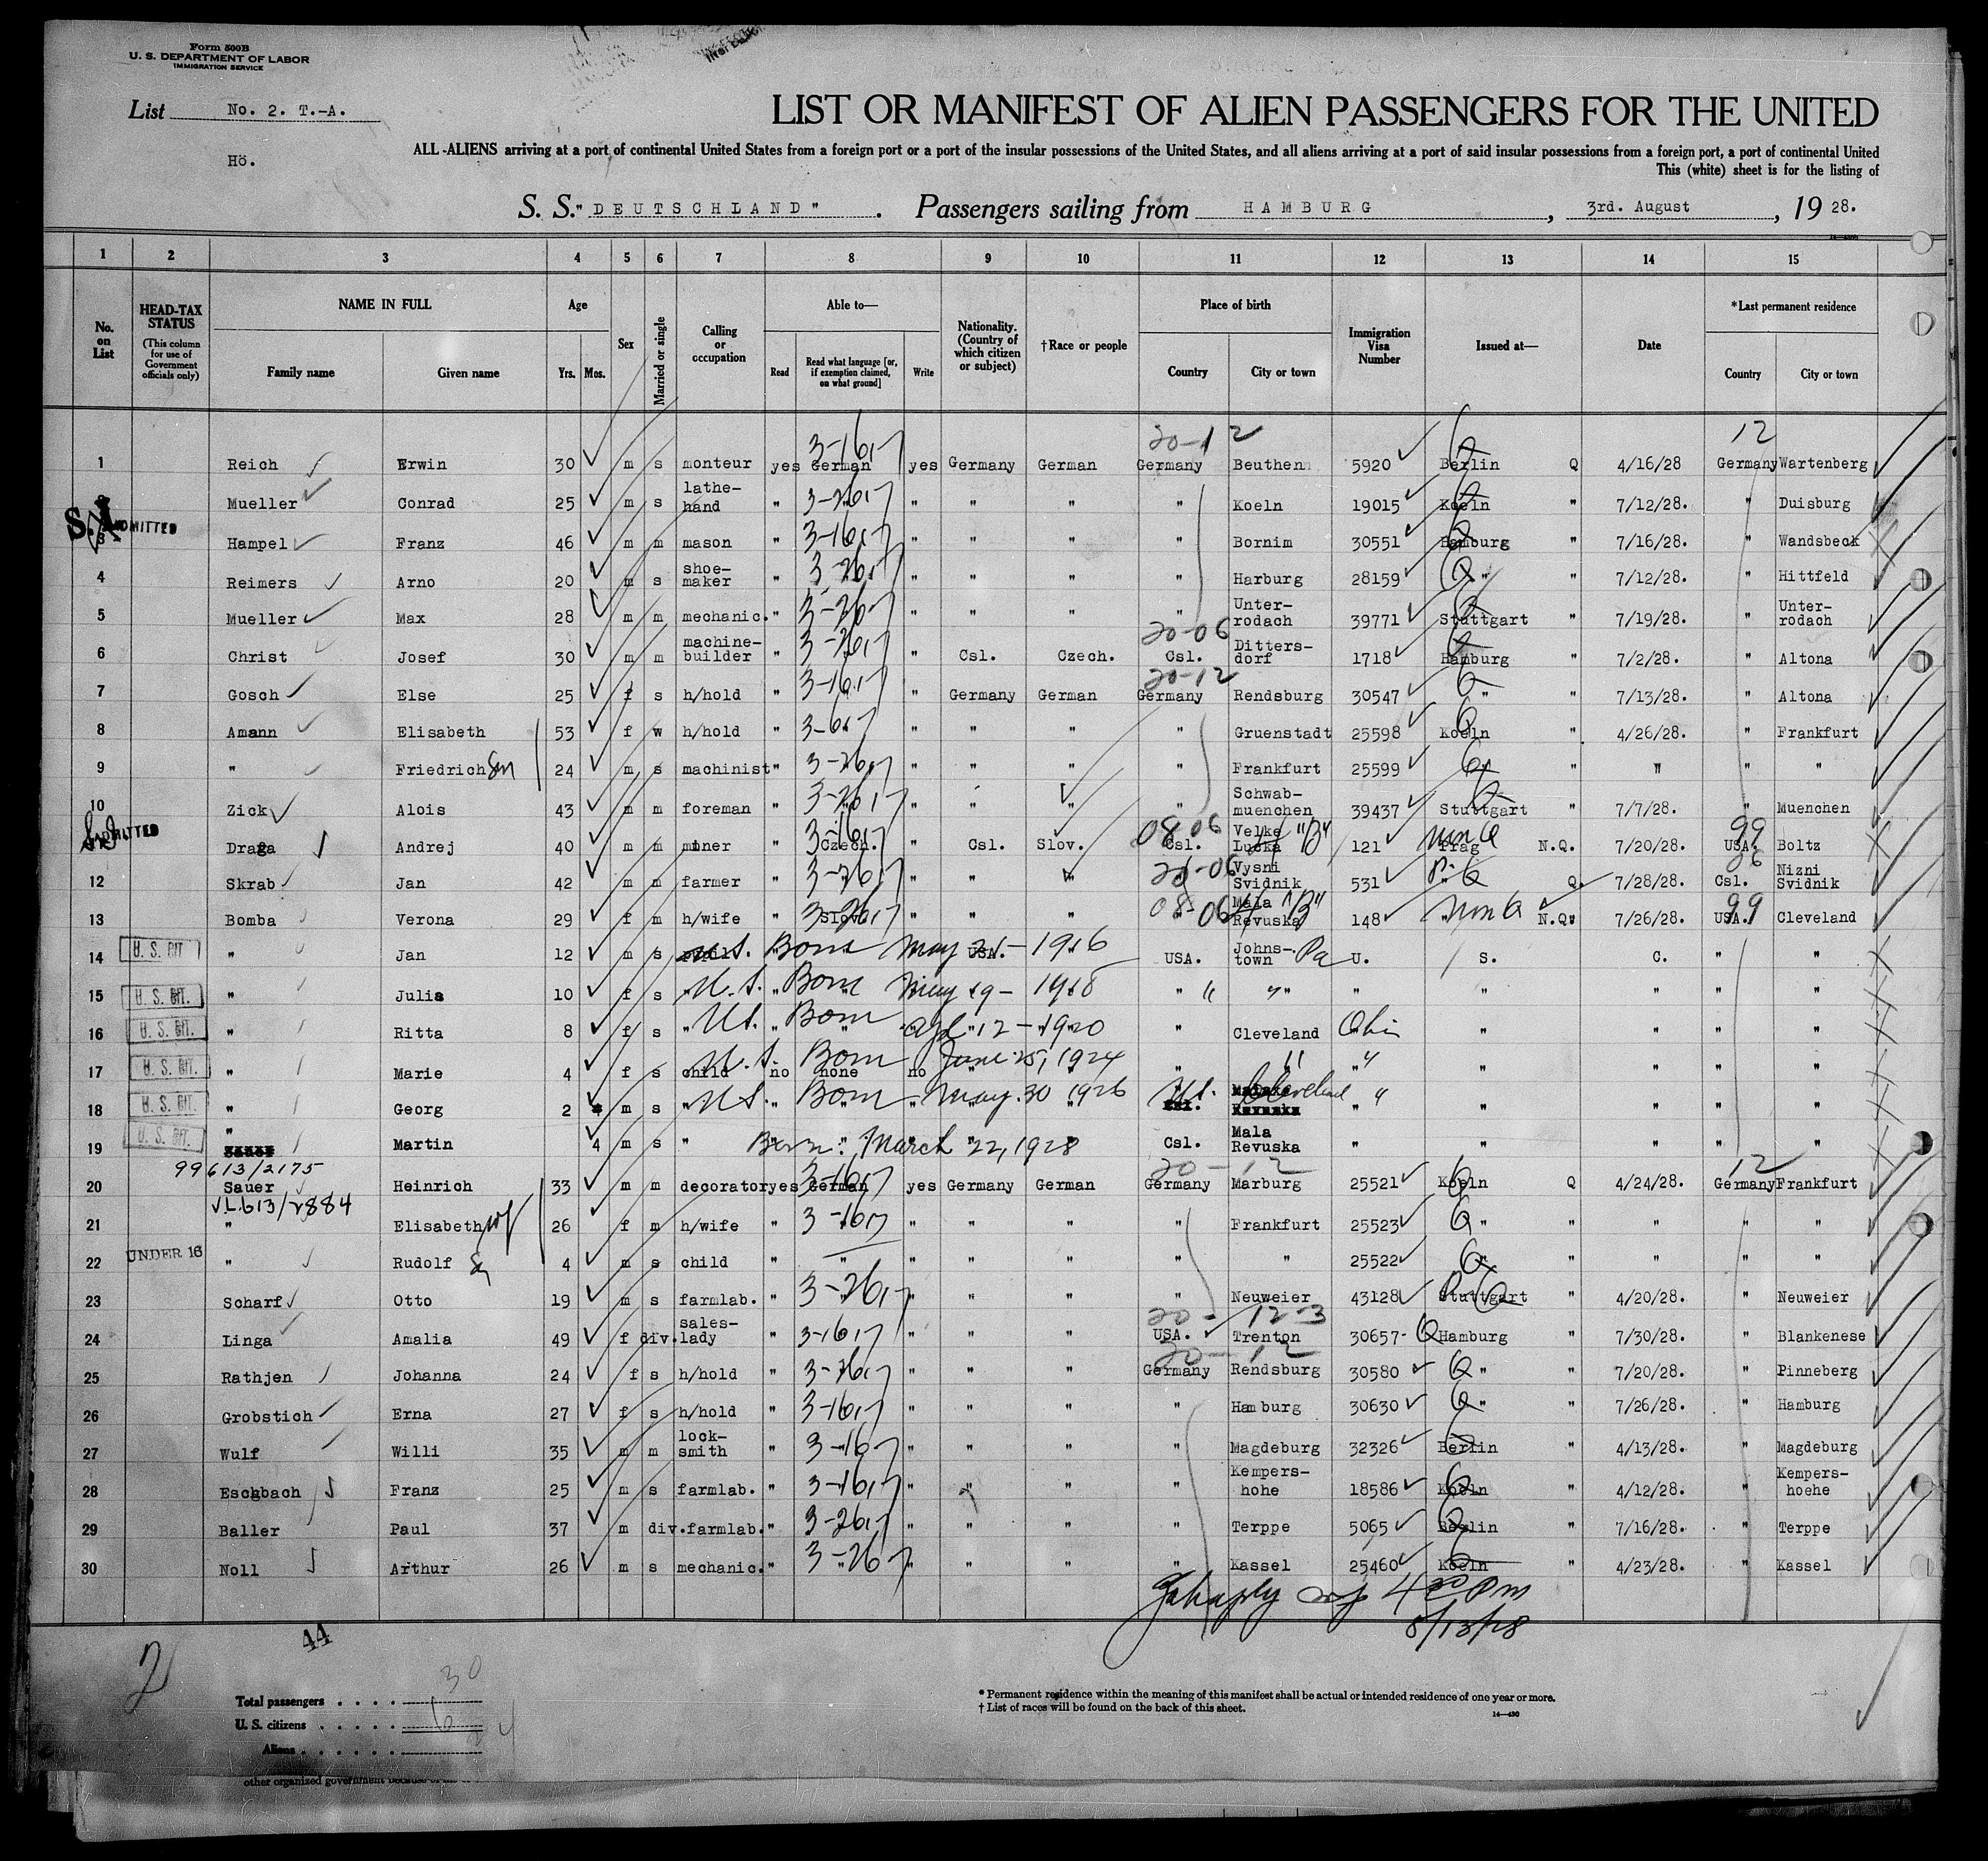 Form 500B
U. S. DEPARTMENT OF LABOR
IMMIGRATION SERVICE
List No. 2. T.-A.
Hö.
LIST OR MANIFEST OF ALIEN PASSENGERS FOR THE UNITED
ALL ALIENS arriving at a port of continental United States from a foreign port or a port of the insular possessions of the United States, and all aliens arriving at a port of said insular possessions from a foreign port, a port of continental United
This (white) sheet is for the listing of
S. S. "DEUTSCHLAND". Passengers sailing from HAMBURG, 3rd. August, 1928.
1 2 3 4 5 6 7 8 9 10 11 12 13 14 15
No. on List
HEAD-TAX STATUS (This column for use of Government officials only)
NAME IN FULL Family name Given name
Age Yrs. Mos.
Sex
Married or single
Calling or occupation
Able to— Read Read what language [or, if exemption claimed, on what ground] Write
Nationality. (Country of which citizen or subject)
†Race or people
Place of birth Country City or town
Immigration Visa Number
Issued at—
Date
*Last permanent residence Country City or town
20-12 12
1 Reich Erwin 30 m s monteur yes German yes Germany German Germany Beuthen 5920 Berlin Q 4/16/28 Germany Wartenberg
Mueller Conrad 25 m s lathe-hand " " " " " " Koeln 19015 Koeln " 7/12/28. " Duisburg
S.I. ADMITTED
3 Hampel Franz 46 m m mason " " " " " Bornim 30551 Hamburg " 7/16/28. " Wandsbeck
4 Reimers Arno 20 m s shoe-maker " " " " " Harburg 28159 " " 7/12/28. " Hittfeld
5 Mueller Max 28 m m mechanic. " " " " " Unter-rodach 39771 Stuttgart " 7/19/28. " Unter-rodach
20-06
6 Christ Josef 30 m m machine-builder " " Csl. Czech. Csl. Ditters-dorf 1718 Hamburg " 7/2/28. " Altona
20-12
7 Gosch Else 25 f s h/hold " " Germany German Germany Rendsburg 30547 " " 7/13/28. " Altona
8 Amann Elisabeth 53 f w h/hold " " " " " Gruenstadt 25598 Koeln " 4/26/28. " Frankfurt
9 " Friedrich Sn 24 m s machinist " " " " " Frankfurt 25599 " " " " "
10 Zick Alois 43 m m foreman " " " " " Schwab-muenchen 39437 Stuttgart " 7/7/28. " Muenchen
ADMITTED
Draga Andrej 40 m m miner " Czech. " Csl. Slov. Csl. Velke "B" 121 Prag N.Q. 7/20/28. USA. Boltz
12 Skrab Jan 42 m m farmer " " " " Vysni Svidnik 531 " Q. 7/28/28. Csl. Nizni Svidnik
13 Bomba Verona 29 f m h/wife " Slov. " " " Mala Revuska "B" 148 " N.Q. 7/26/28. USA. Cleveland
U. S. CIT.
14 " Jan 12 m s U.S. Born May 1916 USA. Johns-town Pa U. S. C. " "
U. S. CIT.
15 " Julia 10 f s " U.S. Born May 19 - 1918 " " " " " " "
U. S. CIT.
16 " Ritta 8 f s " U.S. Born Apl 12 - 1920 " Cleveland Ohio " " " "
U. S. CIT.
17 " Marie 4 f s child no none no U.S. Born June 25, 1924 " " " " " " "
U. S. CIT.
18 " Georg 2 m s " U.S. Born May 30 1926 U.S. Cleveland " " " " "
U. S. CIT.
19 " Martin 4 m s " Born: March 22, 1928 Csl. Mala Revuska " " " " "
99613/2175 20-12 12
20 Sauer Heinrich 33 m m decorator yes German yes Germany German Germany Marburg 25521 Koeln Q 4/24/28. Germany Frankfurt
V.L.613/2884
21 " Elisabeth wf 26 f m h/wife " " " " " Frankfurt 25523 " " " " "
UNDER 16
22 " Rudolf Sn 4 m s child " " " " " " 25522 " " " " "
23 Scharf Otto 19 m s farmlab. " " " " " Neuweier 43128 Stuttgart " 4/20/28. " Neuweier
20-12-3
24 Linga Amalia 49 f div. sales-lady " " " " USA. Trenton 30657 Hamburg " 7/30/28. " Blankenese
20-12
25 Rathjen Johanna 24 f s h/hold " " " " Germany Rendsburg 30580 " " 7/20/28. " Pinneberg
26 Grobstich Erna 27 f s h/hold " " " " " Hamburg 30630 " " 7/26/28. " Hamburg
27 Wulf Willi 35 m m lock-smith " " " " " Magdeburg 32326 Berlin " 4/13/28. " Magdeburg
28 Eschbach Franz 25 m s farmlab. " " " " " Kempers-hohe 18586 Koeln " 4/12/28. " Kempers-hoehe
29 Baller Paul 37 m div. farmlab. " " " " " Terppe 5065 Berlin " 7/16/28. " Terppe
30 Noll Arthur 26 m s mechanic. " " " " " Kassel 25460 Koeln " 4/23/28. " Kassel
4 30 PM
8/13/28
2
44
Total passengers . . . . 30
U. S. citizens . . . . . 6
Aliens . . . . . . 24
*Permanent residence within the meaning of this manifest shall be actual or intended residence of one year or more.
†List of races will be found on the back of this sheet.
14—430
other organized government because of